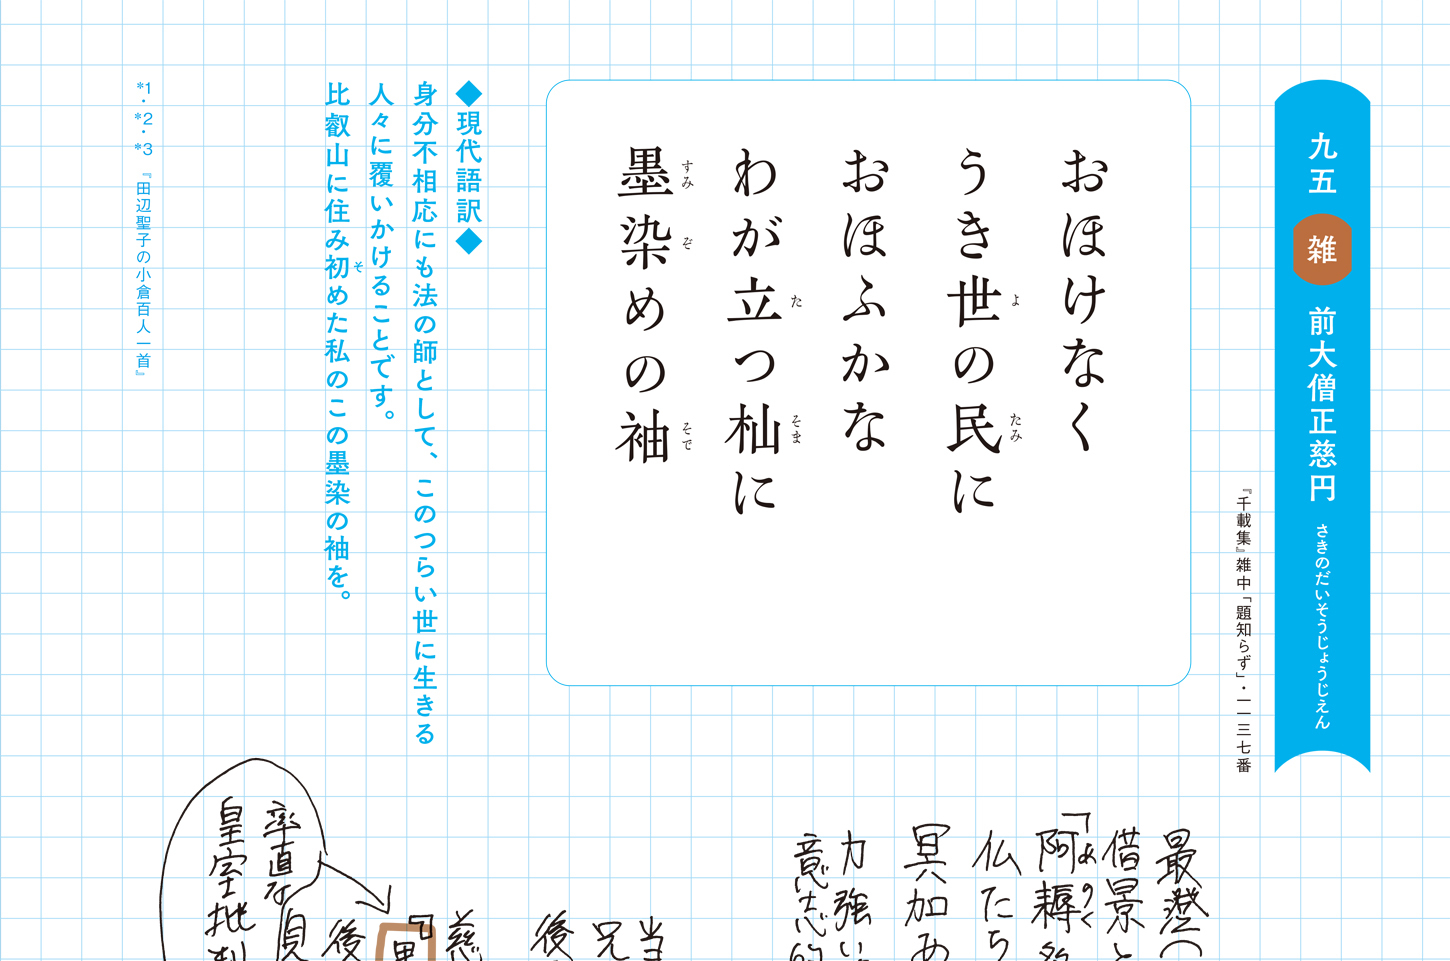 九五 雑 前大僧正慈円 さきのだいそうじょうじえん
『千載集』雑中「題知らず」・一一三七番
おほけなく
うき世の民に
おほふかな
わが立つ杣に
墨染めの袖
よ
たみ
た
そま
すみ
ぞ
そで
◆現代語訳◆
身分不相応にも法の師として、このつらい世に生きる
人々に覆いかけることです。
比叡山に住み初めた私のこの墨染の袖を。
そ
*1・*2・*3 『田辺聖子の小倉百人一首』
最澄の
借景と
「阿耨多
あのく
仏たち
冥加あ
力強い
意志的
当
兄
後
慈
『
後
率直な
皇室批判